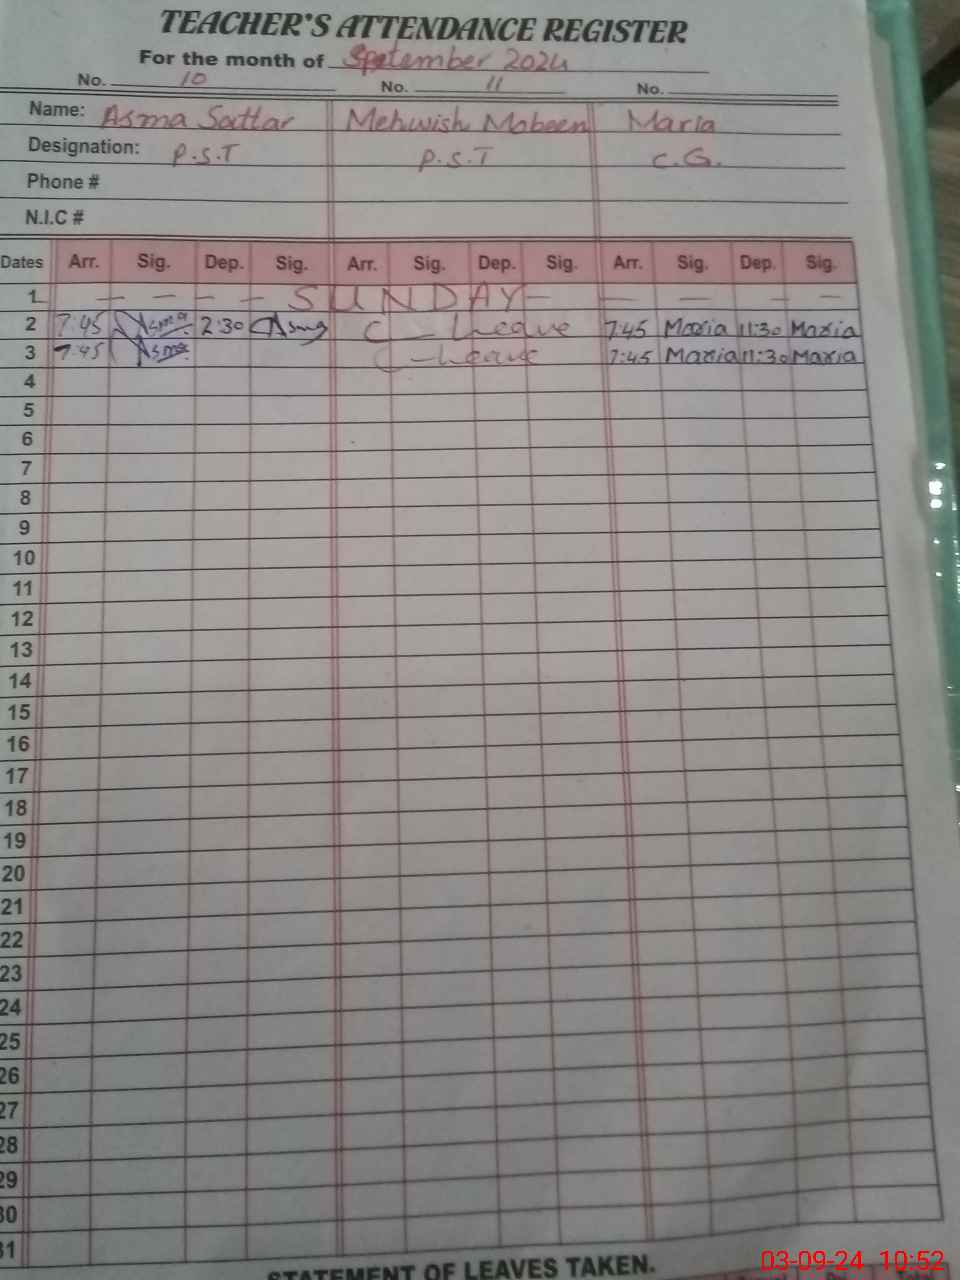 TEACHER'S ATTENDANCE REGISTER
For the month of September 2024
No. 10 No. 11 No.
Name: Asma Sattar Mehwish Mobeen Maria
Designation: P.S.T P.S.T C.G.
Phone #
N.I.C #
Dates Arr. Sig. Dep. Sig. Arr. Sig. Dep. Sig. Arr. Sig. Dep. Sig.
1 — — — — SUNDAY — — — — —
2 7:45 Asma 2:30 Asma C — Leave 7:45 Maria 11:30 Maria
3 7:45 Asma C — Leave 7:45 Maria 11:30 Maria
4
5
6
7
8
9
10
11
12
13
14
15
16
17
18
19
20
21
22
23
24
25
26
27
28
29
30
31
STATEMENT OF LEAVES TAKEN.
03-09-24 10:52